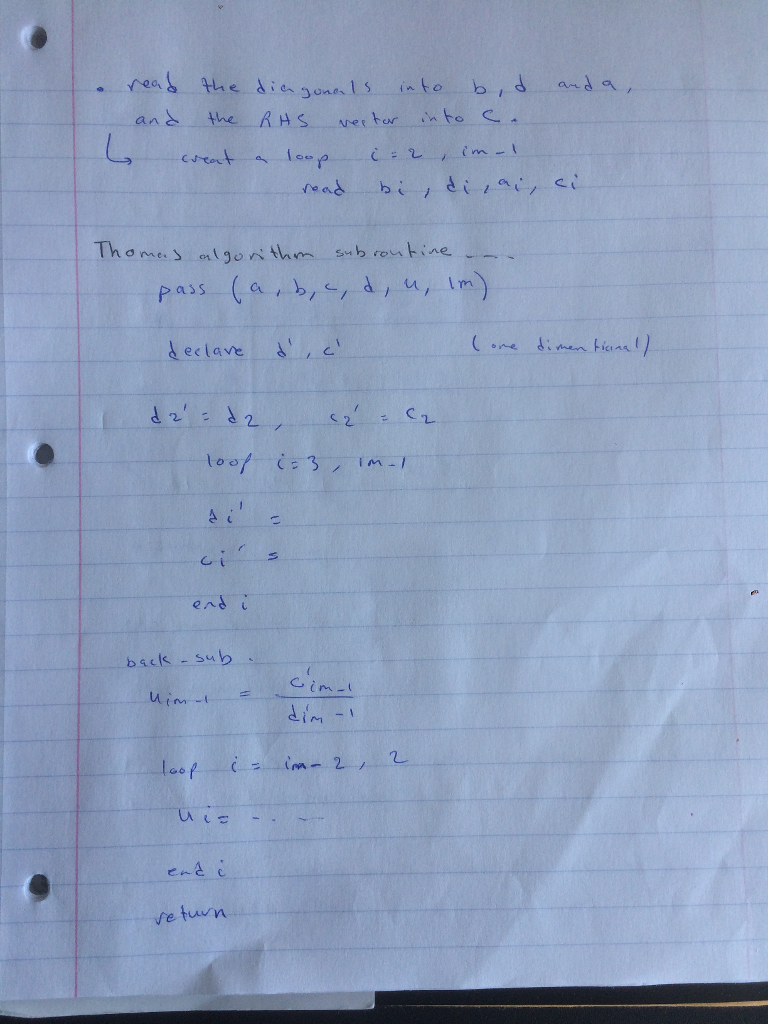 • read the diagonals into b, d and a,
and the RHS vector into c.
↳ creat a loop i = 2, im-1
read bi, di, ai, ci
Thomas algorithm subroutine ----
pass (a, b, c, d, u, Im)
declare d', c' (one dimentional)
d2' = d2, c2' = c2
loop i=3, IM-1
di' =
ci' =
end i
back-sub.
uim-1 = c'im-1
d'im-1
loop i = im-2, 2
ui= -- . --
end i
return